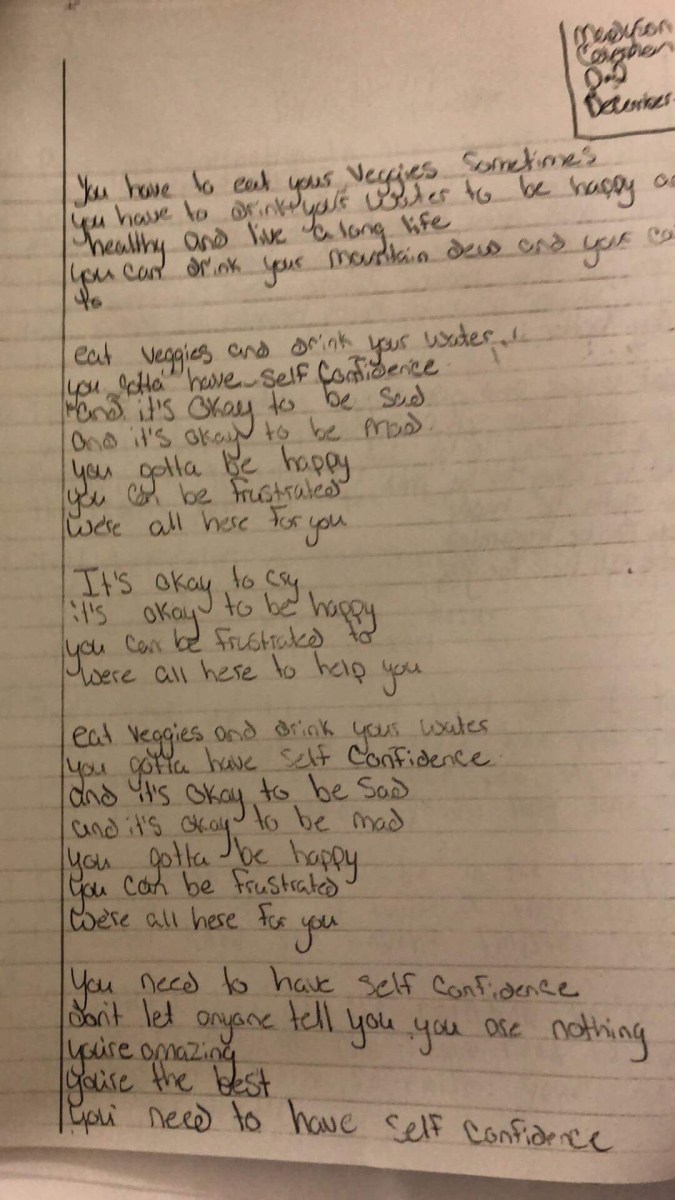 December
You have to eat your veggies sometimes
you have to drink your water to be happy
healthy and live a long life
you can drink your mountain dew and your
to
eat veggies and drink your water
you gotta have self confidence
and it's okay to be sad
and it's okay to be mad
you gotta be happy
you can be frustrated
we're all here for you
It's okay to cry
it's okay to be happy
you can be frustrated to
we're all here to help you
eat veggies and drink your water
you gotta have self confidence
and it's okay to be sad
and it's okay to be mad
you gotta be happy
you can be frustrated
we're all here for you
You need to have self confidence
don't let anyone tell you you are nothing
you're amazing
you're the best
you need to have self confidence